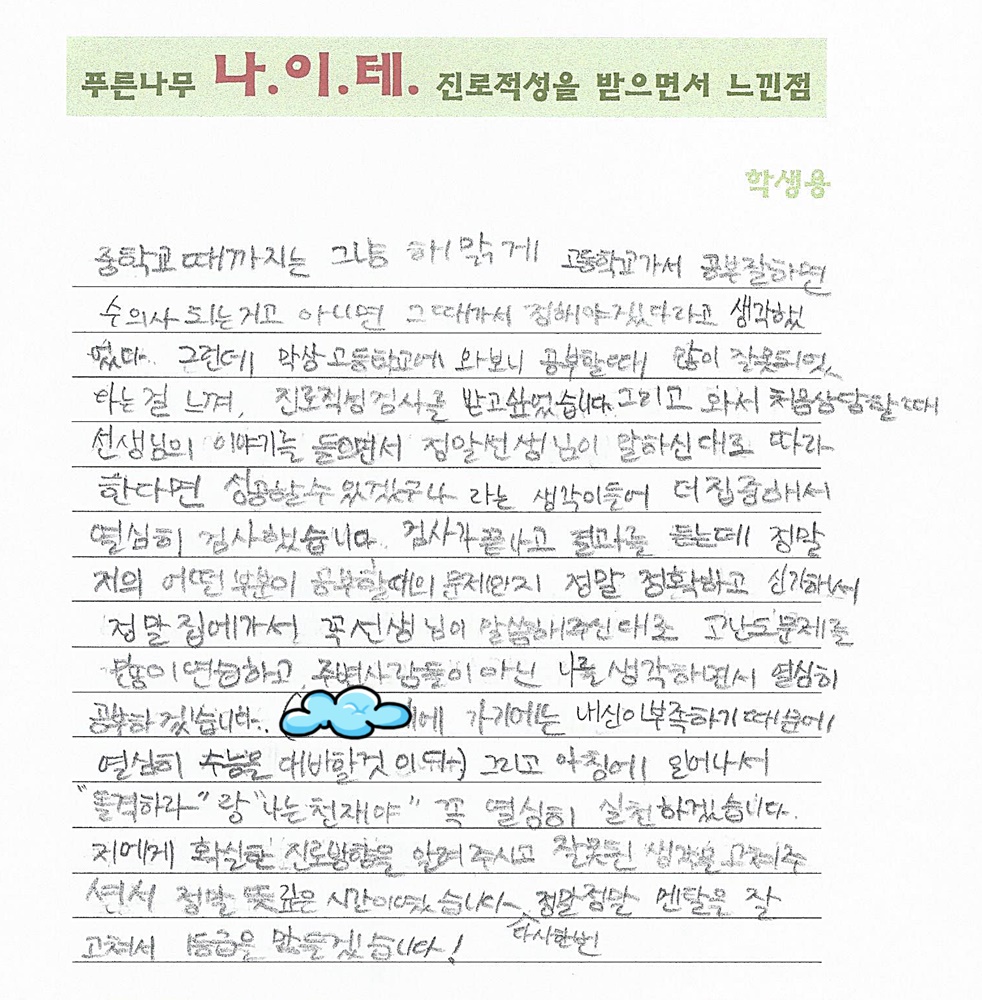 푸른나무 나.이.테. 진로적성을 받으면서 느낀점
학생용
중학교 때까지는 그냥 해맑게 고등학교가서 공부잘하면
수의사 되는거고 아니면 그때가서 정해야겠다라고 생각했
었다. 그런데 막상 고등학교에 와보니 공부할때 많이 잘못되었
다는걸 느껴, 진로적성검사를 받고싶었습니다. 그리고 와서 처음상담할때
선생님의 이야기를 들으면서 정말 선생님이 말하신대로 따라
한다면 성공할수 있겠구나 라는 생각이들어 더 집중해서
열심히 검사했습니다. 검사가 끝나고 결과를 듣는데 정말
저의 어떤 부분이 공부할때의 문제인지 정말 정확하고 신기해서
정말 집에가서 꼭 선생님이 말씀해주신대로 고난도문제를
많이 연습하고, 주변사람들이 아닌 나를 생각하면서 열심히
공부하겠습니다. 에 가기에는 내신이 부족하기 때문에
열심히 수능을 대비할것이다) 그리고 아침에 일어나서
"돌격하라" 랑 "나는 천재야" 꼭 열심히 실천하겠습니다.
저에게 확실한 진로방향을 알려주시고 잘못된 생각을 고쳐주
셔서 정말 뜻깊은 시간이였습니다. 정말정말 멘탈을 잘
다시한번
고쳐서 1등급을 만들겠습니다!